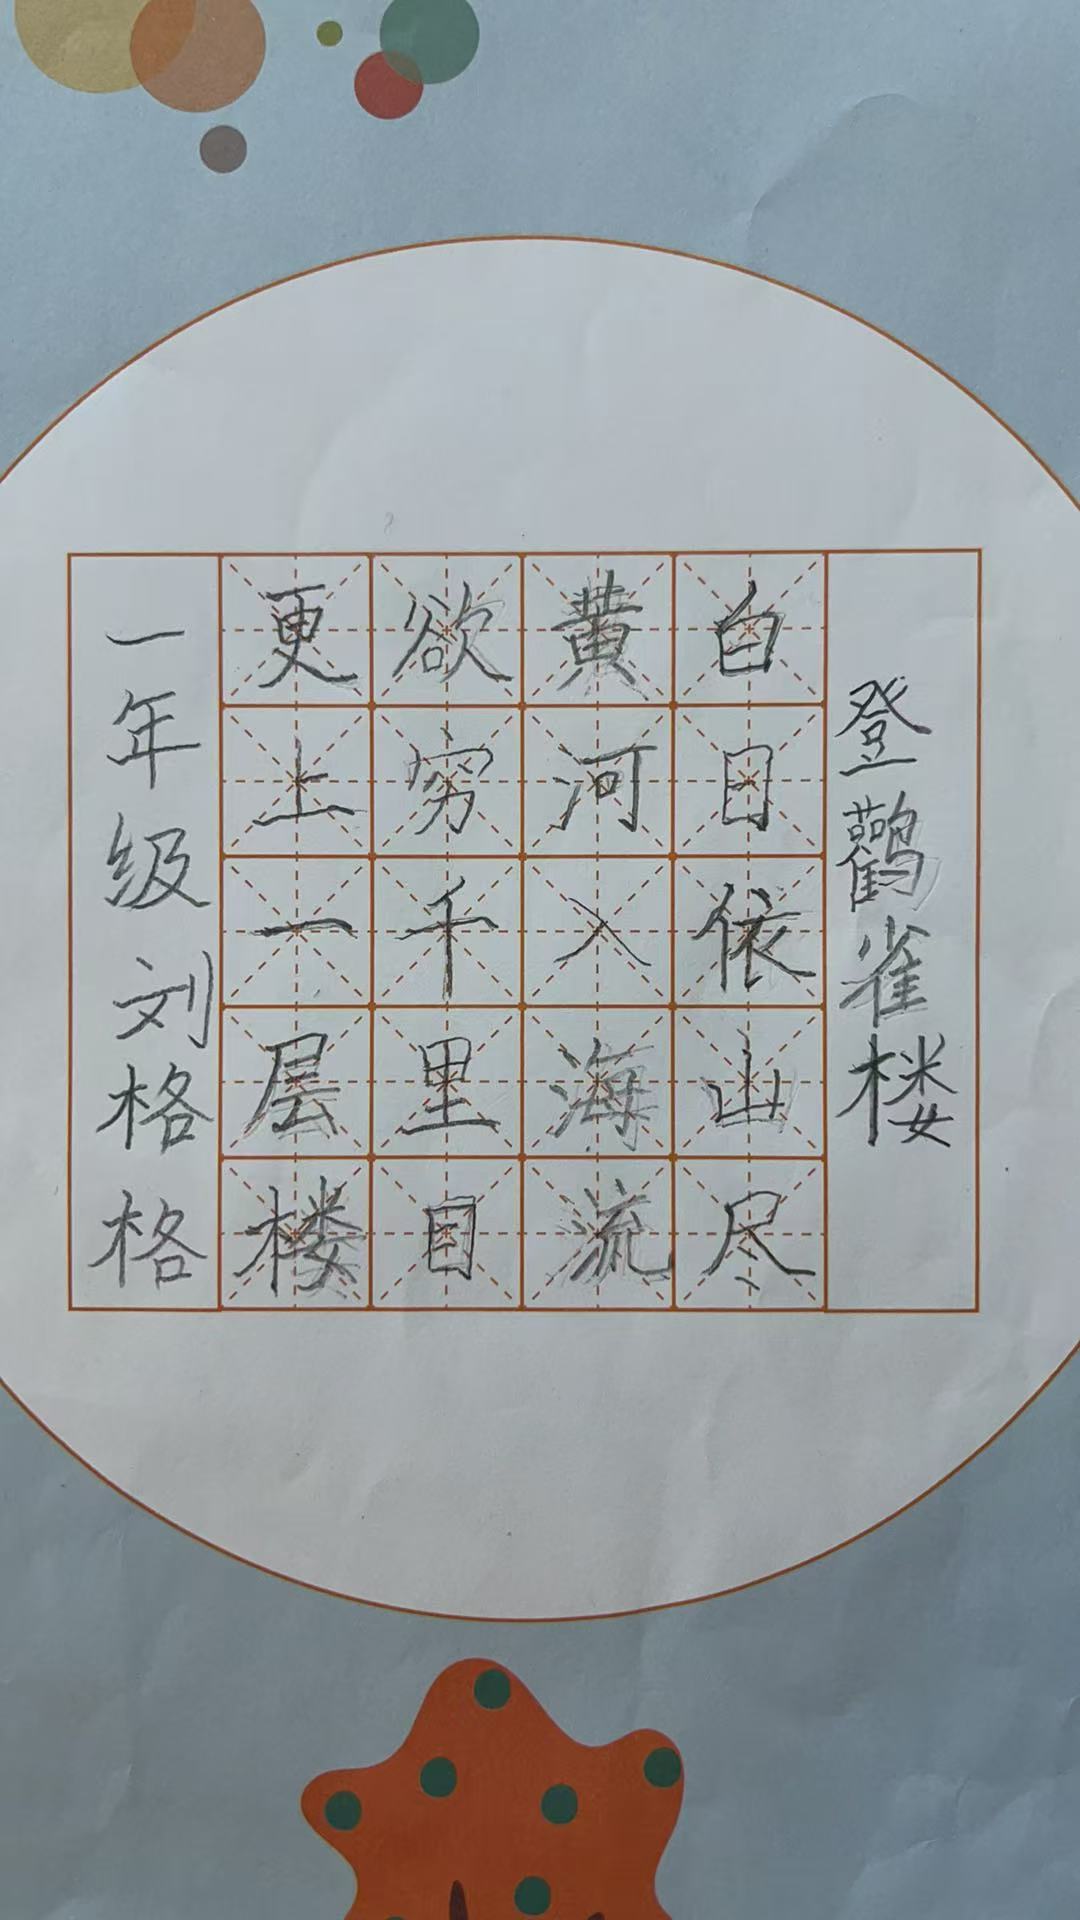 登鹳雀楼
白日依山尽
黄河入海流
欲穷千里目
更上一层楼
一年级刘格格